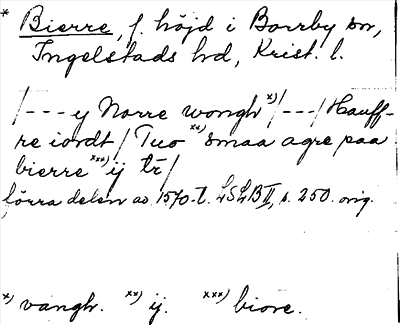 * Bierre, f. höjd i Borrby sn,
Ingelstads hd, Krist. l.
/---y Norre wongh x)/---/Hauff-
re iordt/Tuo xx) smaa agre paa
bierre xxx) ij tr/
förra delen av 1570-t. LSLB II, s. 250. orig.
x) vangh. xx) ij. xxx) biore.